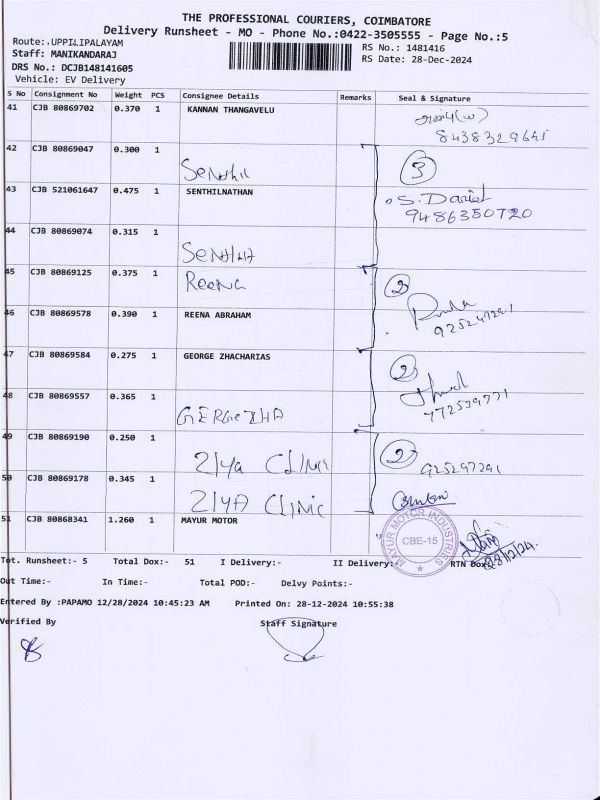 THE PROFESSIONAL COURIERS, COIMBATORE
Delivery Runsheet - MO - Phone No.:0422-3505555 - Page No.:5
Route:.UPPILIPALAYAM
Staff: MANIKANDARAJ
RS No.: 1481416
DRS No.: DCJB148141605
RS Date: 28-Dec-2024
Vehicle: EV Delivery
S No Consignment No Weight PCS Consignee Details Remarks Seal & Signature
41 CJB 80869702 0.370 1 KANNAN THANGAVELU
8438329645
42 CJB 80869047 0.300 1 Senthil 3
43 CJB 521061647 0.475 1 SENTHILNATHAN S. Daniel
9486350720
44 CJB 80869074 0.315 1 Senthil
45 CJB 80869125 0.375 1 Reena 2
46 CJB 80869578 0.390 1 REENA ABRAHAM
47 CJB 80869584 0.275 1 GEORGE ZHACHARIAS 2
48 CJB 80869557 0.365 1
49 CJB 80869190 0.250 1 Ziya CLINIC 2
50 CJB 80869178 0.345 1 ZIYA CLINIC
51 CJB 80868341 1.260 1 MAYUR MOTOR
MAYUR MOTOR INDUSTRIES
CBE-15
28/12/24
Tot. Runsheet:- 5 Total Dox:- 51 I Delivery:- II Delivery:- RTN Dox:
Out Time:- In Time:- Total POD:- Delvy Points:-
Entered By :PAPAMO 12/28/2024 10:45:23 AM Printed On: 28-12-2024 10:55:38
Verified By Staff Signature